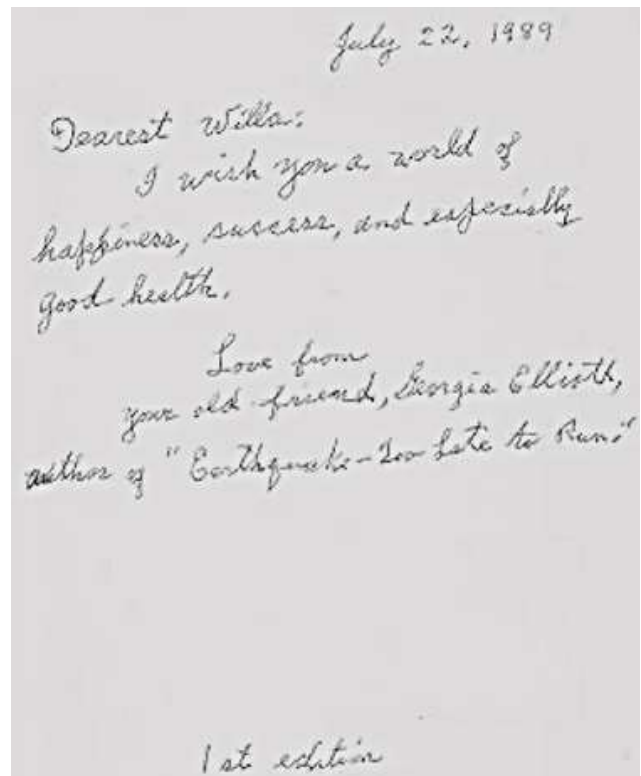 July 22, 1989
Dearest Willa:
I wish you a world of
happiness, success, and especially
good health.
Love from
your old friend, Georgia Elliott,
author of "Earthquake - Too Late to Run."
1st edition